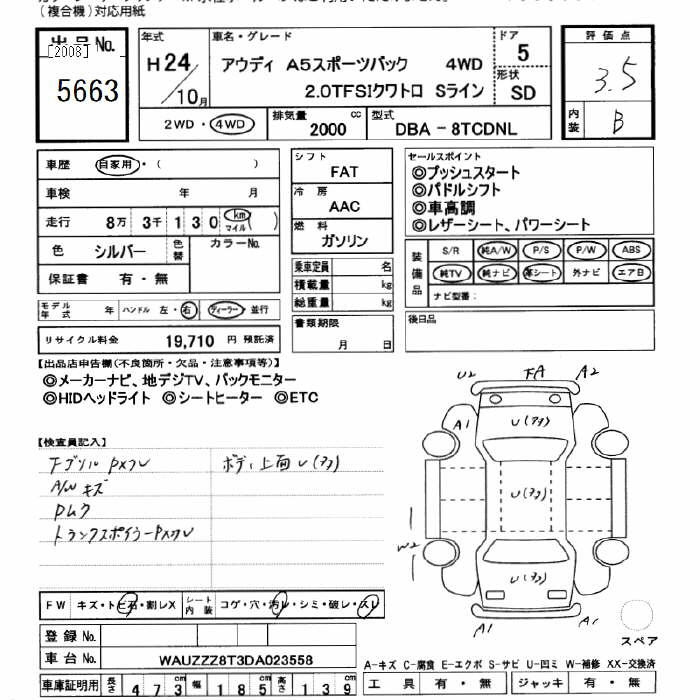 (複合機)対応用紙
出品No.
[2008]
5663
年式
H24/10月
車名・グレード
アウディ A5スポーツバック 4WD
2.0TFSIクワトロ Sライン
ドア
5
形状
SD
評価点
3.5
内装
B
2WD・4WD
排気量
2000
cc
型式
DBA-8TCDNL
車歴 自家用・( )
車検 年 月
走行 8万 3千 1 3 0 km マイル ( )
色 シルバー 色替 カラーNo.
保証書 有・無
モデル年式 年 ハンドル 左・右 ディーラー・並行
リサイクル料金 19,710 円 預託済
シフト
FAT
冷房
AAC
燃料
ガソリン
乗車定員 名
積載量 kg
総重量 kg
書類期限
月 日
セールスポイント
◎プッシュスタート
◎パドルシフト
◎車高調
◎レザーシート、パワーシート
装備品
S/R 純A/W P/S P/W ABS
純TV 純ナビ 革シート 外ナビ エアB
ナビ型番:
後日品
【出品店申告欄(不良箇所・欠品・注意事項等)】
◎メーカーナビ、地デジTV、バックモニター
◎HIDヘッドライト ◎シートヒーター ◎ETC
【検査員記入】
ボディ上面U(アヨ)
A/Wキズ
トランクスポイラーPメクレ
U2 FA A2
A1
U(アヨ)
U(アヨ)
W2
U(アヨ)
A1 A1
スペア
FW キズ・トビ石・割レX シート内装 コゲ・穴・汚レ・シミ・破レ・スレ
登録No.
車台No. WAUZZZ8T3DA023558
車庫証明用 長さ 473cm 幅 185cm 高さ 139cm
A-キズ C-腐食 E-エクボ S-サビ U-凹ミ W-補修 XX-交換済
工具 有・無 ジャッキ 有・無